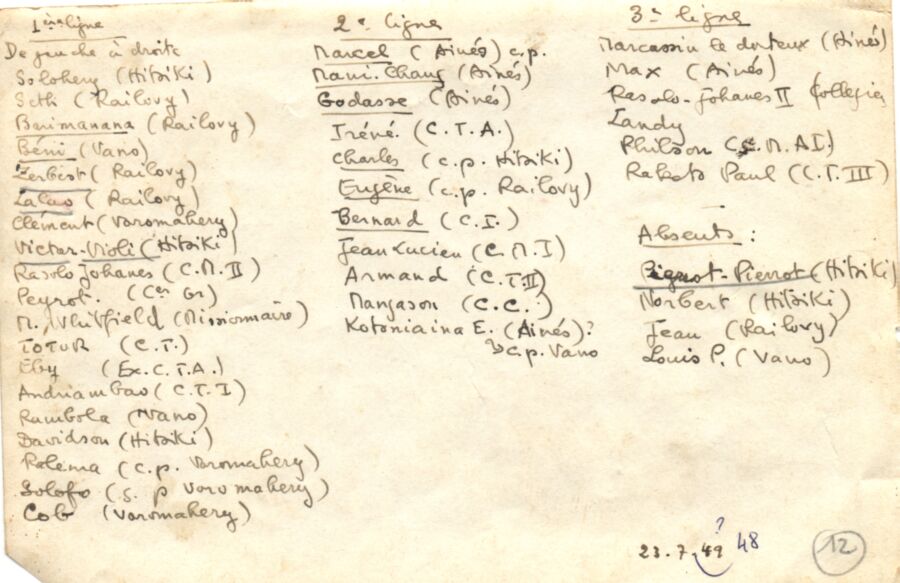 1ère ligne
De gauche à droite
Solohery (Hitsiki)
Seth (Railovy)
Benimanana (Railovy)
Béni (Vano)
Zerbest (Railovy)
Lalao (Railovy)
Clément (Voromahery)
Victor-Violi (Hitsiki)
Rasolo Johanes (C.M.II)
Peyrot. (Cer Gr)
M. Whitfield (Missionnaire)
TOTOR (C.T.)
Eby (Ex. C.T.A.)
Andriambao (C.T.I)
Rambola (Vano)
Davidson (Hitsiki)
Ralema (c.p. Voromahery)
Solofo (s.p Voromahery)
Cob (Voromahery)
2e ligne
Marcel (Ainés) c.p.
Mavi-Chang (Ainés)
Godasse (Ainés)
Iréné. (C.T.A.)
Charles (c.p. Hitsiki)
Eugène (c.p. Railovy)
Bernard (C.I.)
Jean Lucien (C.M.I)
Armand (C.T.II)
Manjason (C.C.)
Kotoniaina E. (Ainés)?
c.p. Vano
3e ligne
Marcassin le douteux (Ainés)
Max (Ainés)
Rasolo-Johanes II Collegies
Landy
Philson (C.M.AI.)
Rakoto Paul (C.T.III)
Absents :
Pignot-Pierrot (Hitsiki)
Norbert (Hitsiki)
Jean (Railovy)
Louis P. (Vano)
?
23.7.49 48
12